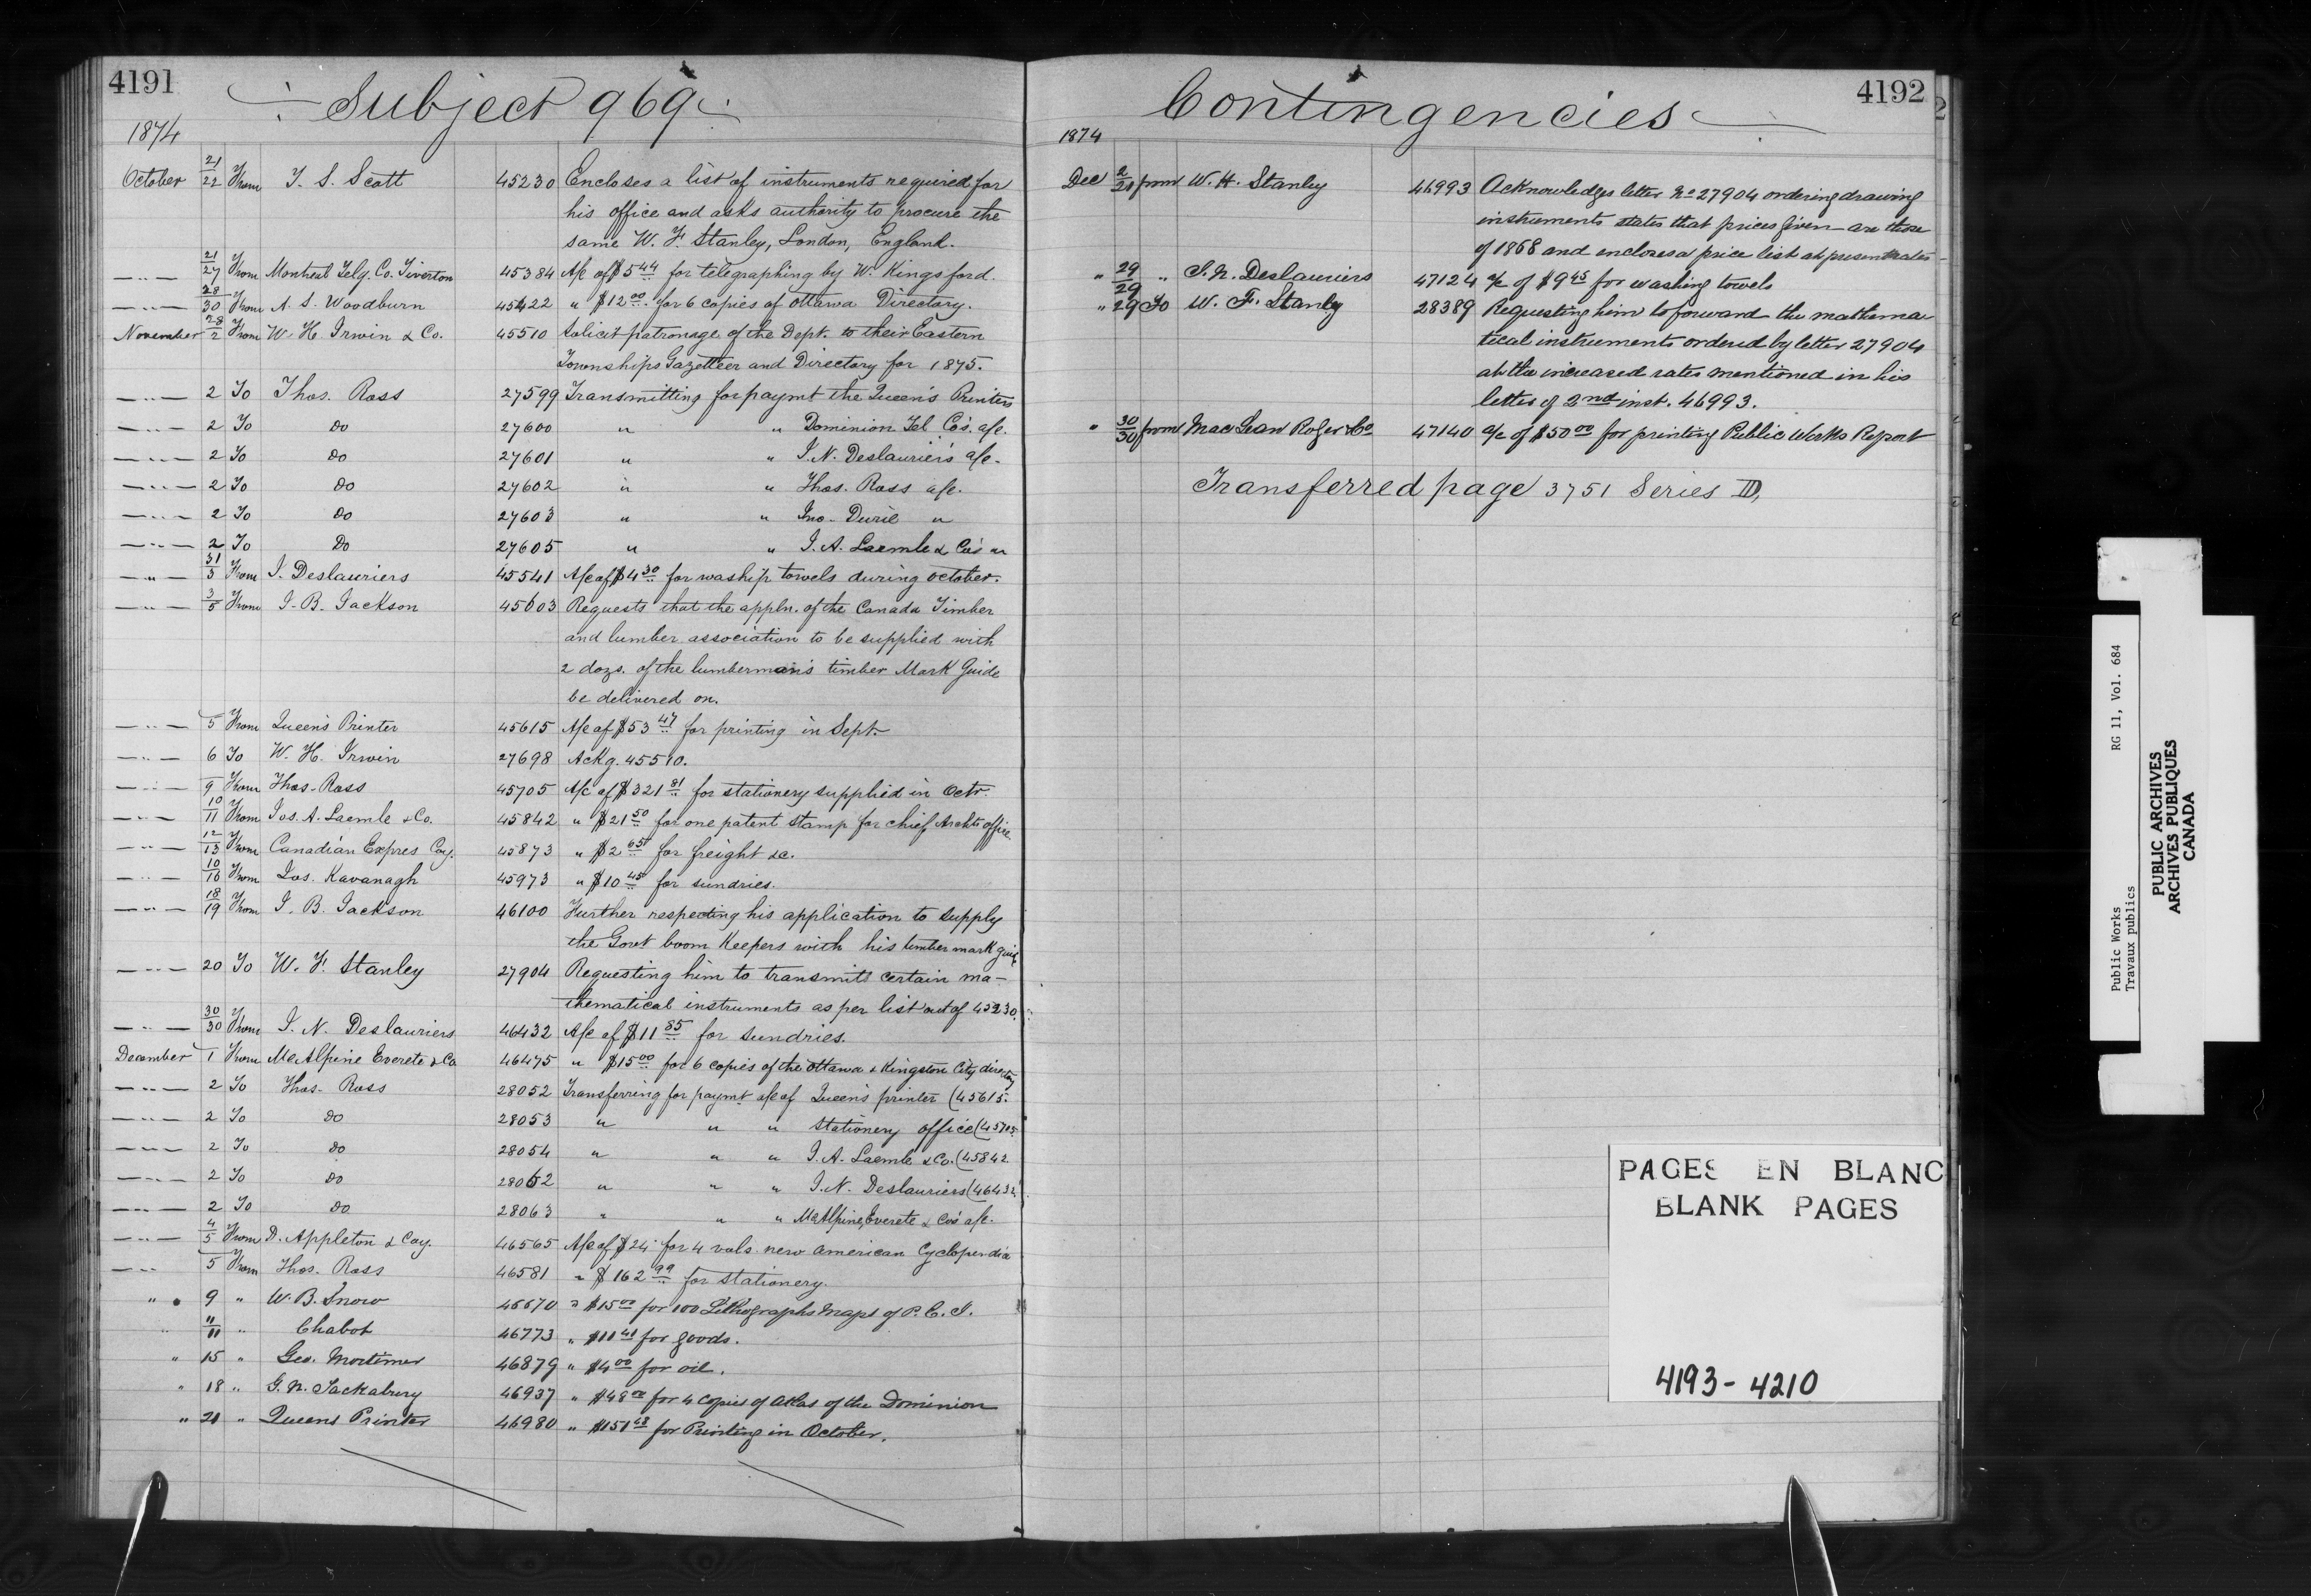 4191
Subject 969
1874
October 21/22 From T. S. Scott 45230 Encloses a list of instruments required for
his office and asks authority to procure the
same W. F. Stanley, London, England.
—"— 21/27 From Montreal Telg. Co. Tiverton 45384 A/c of $5 44 for telegraphing by W. Kingsford.
—"— 28/30 From A. S. Woodburn 45422 " $12 00 for 6 copies of Ottawa Directory.
November 28/2 From W. H. Irwin & Co. 45510 Solicit patronage of the Dept. to their Eastern
Townships Gazetteer and Directory for 1875.
—"— 2 To Thos. Ross 27599 Transmitting for paymt the Queen's Printers
—"— 2 To do 27600 " " Dominion Tel Co's. a/c.
—"— 2 To do 27601 " " J. N. Deslauriers a/c.
—"— 2 To do 27602 " " Thos. Ross a/c.
—"— 2 To do 27603 " " Jno. Durie "
—"— 2 To Do 27605 " " J. A. Laemle & Co's "
—"— 31/3 From J. Deslauriers 45541 A/c of $4 30 for waship towels during October.
—"— 3/5 From J. B. Jackson 45603 Requests that the appln. of the Canada Timber
and lumber association to be supplied with
2 dozs. of the lumberman's timber Mark Guide
be delivered on.
—"— 5 From Queen's Printer 45615 A/c of $53 47 for printing in Sept.
—"— 6 To W. H. Irwin 27698 Ackg. 45510.
—"— 9 From Thos. Ross 45705 A/c of $321 81 for stationery supplied in Octr.
—"— 10/11 From Jos. A. Laemle & Co. 45842 " $21 50 for one patent stamp for chief Archts office
—"— 12/13 From Canadian Expres Coy. 45873 " $2 65 for freight &c.
—"— 10/16 From Jos. Kavanagh 45973 " $10 45 for sundries.
—"— 18/19 From J. B. Jackson 46100 Further respecting his application to supply
the Govt boom Keepers with his timber mark guide
—"— 20 To W. F. Stanley 27904 Requesting him to transmit certain ma-
thematical instruments as per list out of 45230.
—"— 30/30 From J. N. Deslauriers 46432 A/c of $11 85 for sundries.
December 1 From McAlpine Everete & Co 46475 " $15 00 for 6 copies of the Ottawa & Kingston City directory
—"— 2 To Thos. Ross 28052 Transferring for paymt a/c of Queen's printer (45615.
—"— 2 To do 28053 " " " Stationery office (45705.
—"— 2 To do 28054 " " " J. A. Laemle & Co. (45842
—"— 2 To do 28062 " " " J. N. Deslauriers (46432
—"— 2 To do 28063 " " " McAlpine, Everete & Co's a/c.
—"— 4/5 From D. Appleton & Coy. 46565 A/c of $24 for 4 vols. new American Cyclopendia
—"— 5 From Thos. Ross 46581 " $162 99 for stationery.
" 9 " W. B. Snow 46670 " $15 00 for 100 Lithographs Maps of P. E. I.
" 11/11 " Chabot 46773 " $11 41 for goods.
" 15 " Geo. Mortimer 46879 " $4 00 for oil.
" 18 " G. N. Tackabury 46937 " $48 00 for 4 copies of Atlas of the Dominion
" 21 " Queens Printer 46980 " $151 48 for Printing in October.
4192
Contingencies
1874
Dec 2/21 from W. H. Stanley 46993 Acknowledges letter No 27904 ordering drawing
instruments states that prices given are those
of 1868 and encloses a price list at present rates
" 29/29 " J. N. Deslauriers 47124 a/c of $9 45 for washing towels
" 29 To W. F. Stanley 28389 Requesting him to forward the mathema-
tical instruments ordered by letter 27904
at the increased rates mentioned in his
letter of 2nd inst. 46993.
" 30/30 from MacLean Roger & Co 47140 a/c of $50 00 for printing Public Works Report
Transferred page 3751 Series D,
PAGES EN BLANC
BLANK PAGES
4193-4210
Public Works RG 11, Vol. 684
Travaux publics
PUBLIC ARCHIVES
ARCHIVES PUBLIQUES
CANADA